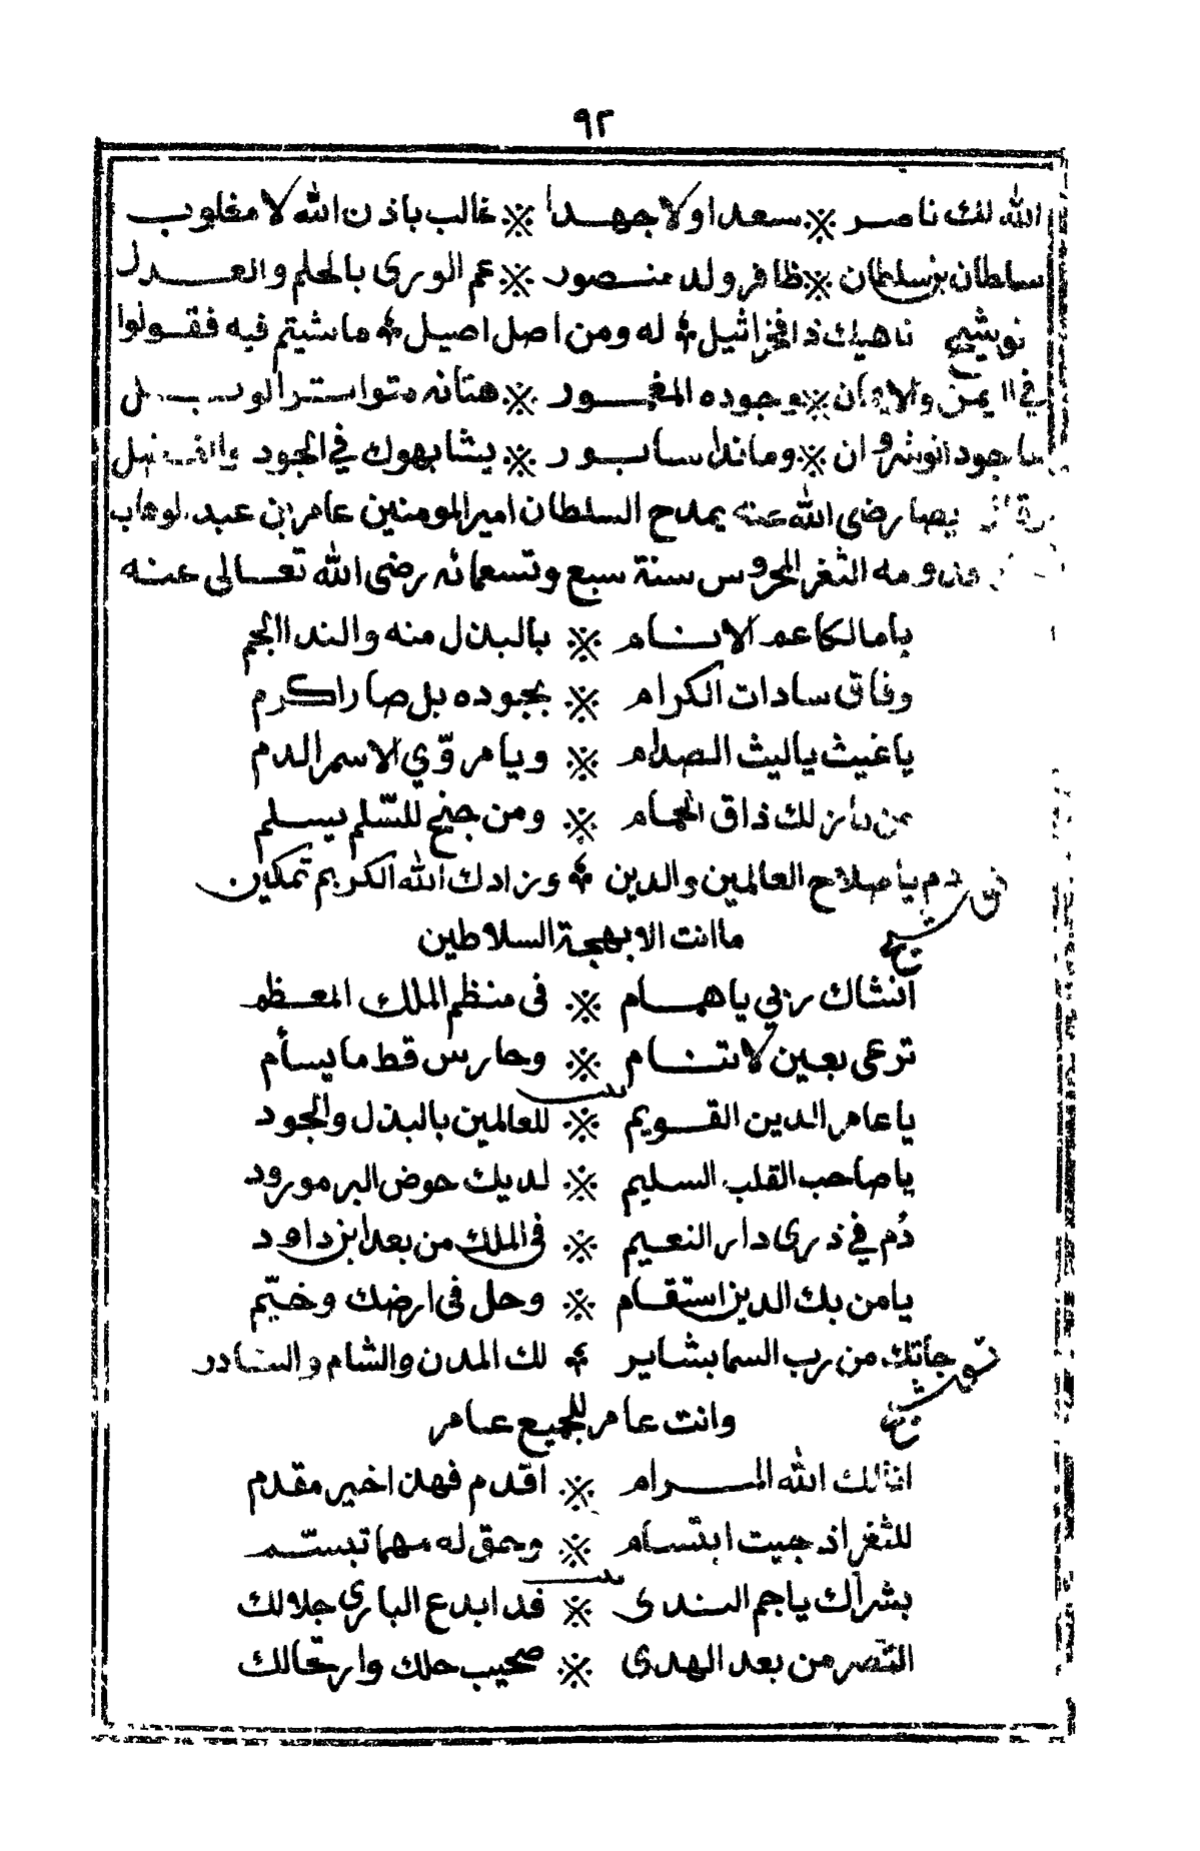 ٩٢
الله لك ناصر ※ سعدا ولا جهدا ※ غالب باذن الله لا مغلوب
سلطان بن سلطان ※ ظافر ولد منصور ※ عم الورى بالحلم والعدل
توشيح ناهيك ذا فخر اثيل ※ له ومن اصل اصيل ※ ماشيتم فيه فقولوا
في اليمن والايمان ※ وجوده المغمور ※ هتانه متواتر الوبل
ما جود انوشروان ※ وماندا سابور ※ يشابهوك في الجود والفضل
وقال ايضا رضى الله عنه يمدح السلطان امير المومنين عامر ابن عبد الوهاب
قدومه الثغر المحروس سنة سبع وتسعمائه رضى الله تعالى عنه
يا مالكا عم الانام ※ بالبذل منه والندا الجم
وفاق سادات الكرام ※ بجوده بل صار اكرم
يا غيث يا ليث الصدام ※ ويا مروّي الاسمر الدم
من بارزك ذاق الحمام ※ ومن جنح للسّلم يسلم
توشيح دم يا صلاح العالمين والدين ※ وزادك الله الكريم تمكين
ما انت الا بهجة السلاطين
انشاك ربي يا همام ※ فى منظم الملك المعظم
ترعى بعين لا تنام ※ وحارس قط ما يسأم
بيت
يا عامر الدين القويم ※ للعالمين بالبذل والجود
يا صاحب القلب السليم ※ لديك حوض البر مورود
دُم في ذرى دار النعيم ※ فى الملك من بعد ابن داود
يا من بك الدين استقام ※ وحل فى ارضك وخيّم
توشيح جأتك من رب السما بشاير ※ لك المدن والشام والبنادر
وانت عامر للجميع عامر
انالك الله المرام ※ اقدم فهذا خير مقدم
للثغر اذ جيت ابتسام ※ وحق له مهما تبستم
بيت
بشراك يا جم الندى ※ قد ابدع الباري جلالك
النصر من بعد الهدى ※ صحيب حلك وارتحالك